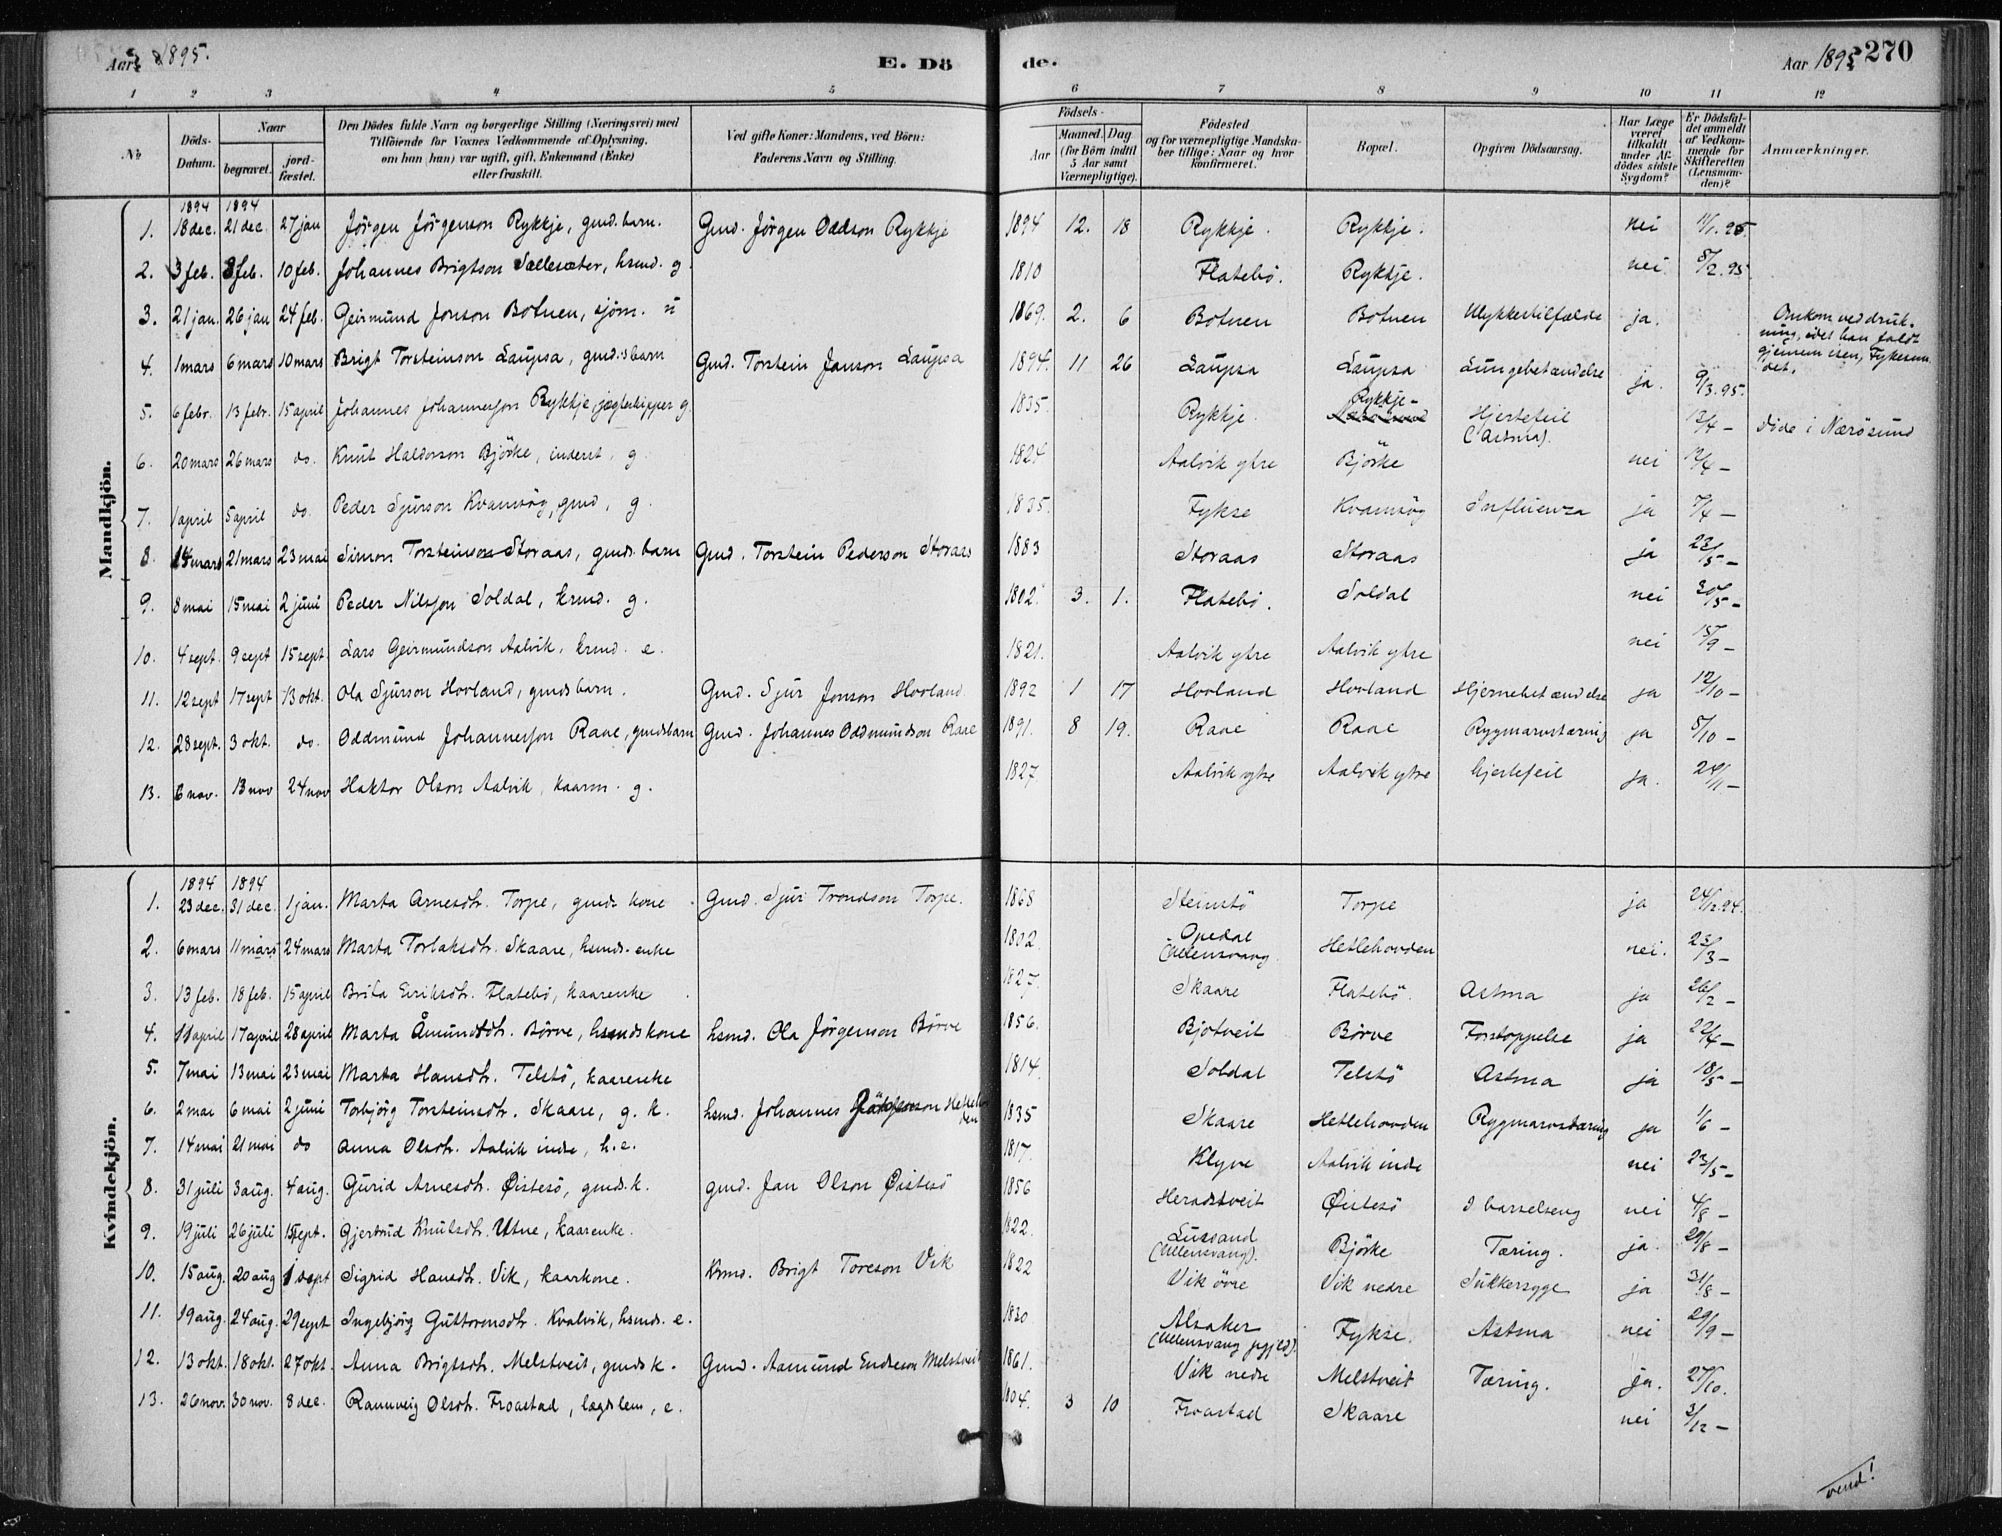 Aar 1895.
E. Döde.
Aar 1895 270
1 2 3 4 5 6 7 8 9 10 11 12
No
Döds-Datum.
Naar
begravet.
jord-fæstet.
Den Dödes fulde Navn og borgerlige Stilling (Næringsvei) med
Tilföiende for Voxnes Vedkommende af Oplysning,
om han (hun) var ugift, gift, Enkemand (Enke)
eller fraskilt.
Ved gifte Koner: Mandens, ved Börn:
Faderens Navn og Stilling.
Födsels-
Aar
Maaned. Dag
(for Börn indtil
5 Aar samt
Værnepligtige).
Födested
og for værnepligtige Mandska-
ber tillige: Naar og hvor
konfirmeret.
Bopæl.
Opgiven Dödsaarsag.
Har Læge
været
tilkaldt
under Af-
dödes sidste
Sygdom?
Er Dödsfal-
det anmeldt
af Vedkom-
mende for
Skifteretten
(Lensman-
den)?
Anmærkninger.
Mandkjön.
1894 1894
1. 18 dec. 21 dec. 27 jan Jörgen Jörgenson Rykkje, gmd. barn. Gmd. Jörgen Oddson Rykkje 1894 12. 18 Rykkje. Rykkje. nei 11/1.95.
2. 3 feb. 8 feb. 10 feb. Johannes Brigtson Sællesæter, hsmd. g. 1810 Flatebö. Rykkje. nei 8/2.95
3. 21 jan. 26 jan 24 feb. Geirmund Jonson Botnen, sjöm. u 1869. 2. 6 Botnen Botnen Ulykkestilfælde ja. Omkom ved druk-
ning, idet han faldt
gjennem isen, Fykesun
det.
4. 1 mars 6 mars 10 mars Brigt Torsteinson Laupsa, gmd.s barn Gmd. Torstein Janson Laupsa 1894. 11 26 Laupsa Laupsa Lungebetændelse ja. 9/3.95.
5. 6 febr. 13 febr. 15 april Johannes Johannesson Rykkje, jægteskipper g. 1835. Rykkje. Rykkje- Hjertefeil
(Astma). 13/4 - Döde i Nærösund
6. 20 mars 26 mars do. Knut Haldorson Bjørke, inderst, g. 1824 Aalvik ytre Bjørke nei 12/4 -
7. 1 april 5 april do. Peder Sjurson Kvamsög, gmd, g. 1835. Fykse Kvamsög Influenza ja 7/4 -
8. 14 mars 21 mars 23 mai Simon Torsteinson Storaas, gmds. barn Gmd. Torstein Pederson Storaas 1883 Storaas Storaas ja 22/5 -
9. 8 mai 15 mai 2 juni Peder Nilsson Soldal, krmd. g. 1802. 3. 1. Flatebö. Soldal nei 30/5 -
10. 4 sept. 9 sept 15 sept. Lars Geirmundson Aalvik, krmd. e. 1821. Aalvik ytre Aalvik ytre nei 15/9 -
11. 12 sept 17 sept 13 okt. Ola Sjurson Hovland, gmds barn. Gmd. Sjur Jonson Hovland 1892 1 17 Hovland Hovland Hjernebetændelse ja 12/10 -
12. 28 sept. 3 okt. do. Oddmund Johannesson Raae, gmdsbarn Gmd. Johannes Oddmundson Raae 1891. 8 19. Raae Raae Rygmarvstæring ja 8/10 -
13. 6 nov. 13 nov 24 nov Haktor Olson Aalvik, kaarm. g. 1827 Aalvik ytre Aalvik ytre hjertefeil ja. 24/11 -
Kvindekjön.
1894 1894
1. 23 dec. 31 dec. 1 jan. Marta Arnesdtr. Torpe, gmds kone. Gmd. Sjur Trondson Torpe. 1868 Steinstö Torpe ja 24/12.94.
2. 6 mars 11 mars 24 mars Marta Torlaksdtr. Skaare, hsmds. enke 1802. Opedal
(Ullensvang. Hetlehovden nei. 23/3 -
3. 13 feb. 18 feb. 15 april Brita Eriksdtr. Flatebö, kaarenke 1827. Skaare Flatebö. Astma ja 26/2 -
4. 11 april 17 april 28 april Marta Åmundsdtr. Börve, hsmdskone hsmd. Ola Jörgenson Börve 1856. Bjotveit Börve Forstoppelse ja 22/4 -
5. 7 mai 13 mai 23 mai Marta Hansdtr. Telstö, kaarenke 1814. Soldal Telstö Astma ja 18/5 -
6. 2 mai 6 mai 2 juni Torbjörg Torsteinsdtr. Skaare, g. k. hsmd. Johannes Hetleho
den 1835 Skaare Hetlehovden Rygmarvstæring ja 1/6 -
7. 14 mai 21 mai do Anna Olsdtr. Aalvik inde, h. e. 1817. Klyve Aalvik inde nei 23/5 -
8. 31 juli 3 aug. 4 aug. Gurid Arnesdtr. Øistesö, gmds. k. gmd. Jan Olson Øistesö 1856 Heradstveit Øistesö I barselseng nei 4/8 -
9. 19 juli 26 juli 15 sept. Gjertrud Knutsdtr. Utne, kaarenke. 1822. Lussand
(Ullensvang). Bjørke Tæring. ja. 29/8 -
10. 15 aug. 20 aug 1 sept Sigrid Hansdtr. Vik, kaarkone. Krmd. Brigt Toreson Vik 1822 Vik övre Vik nedre Sukkersyge ja 31/8 -
11. 19 aug. 24 aug. 29 sept Ingebjörg Guttormsdtr. Kvalvik, hsmds. e. 1830 Alsaker
(Ullensvang pgjld). Fykse. Astma nei 29/9 -
12. 13 okt. 18 okt. 27 okt. Anna Brigtsdtr. Melstveit, gmds k. Gmd. Aamund Endreson Melstveit 1861. Vik nedre Melstveit Tæring. ja. 27/10.
13. 26 nov. 30 nov. 8 dec. Rannveig Olsdtr. Froastad, lægdslem, e. 1804. 3 10 Froastad Skaare nei 3/12 -
vend!